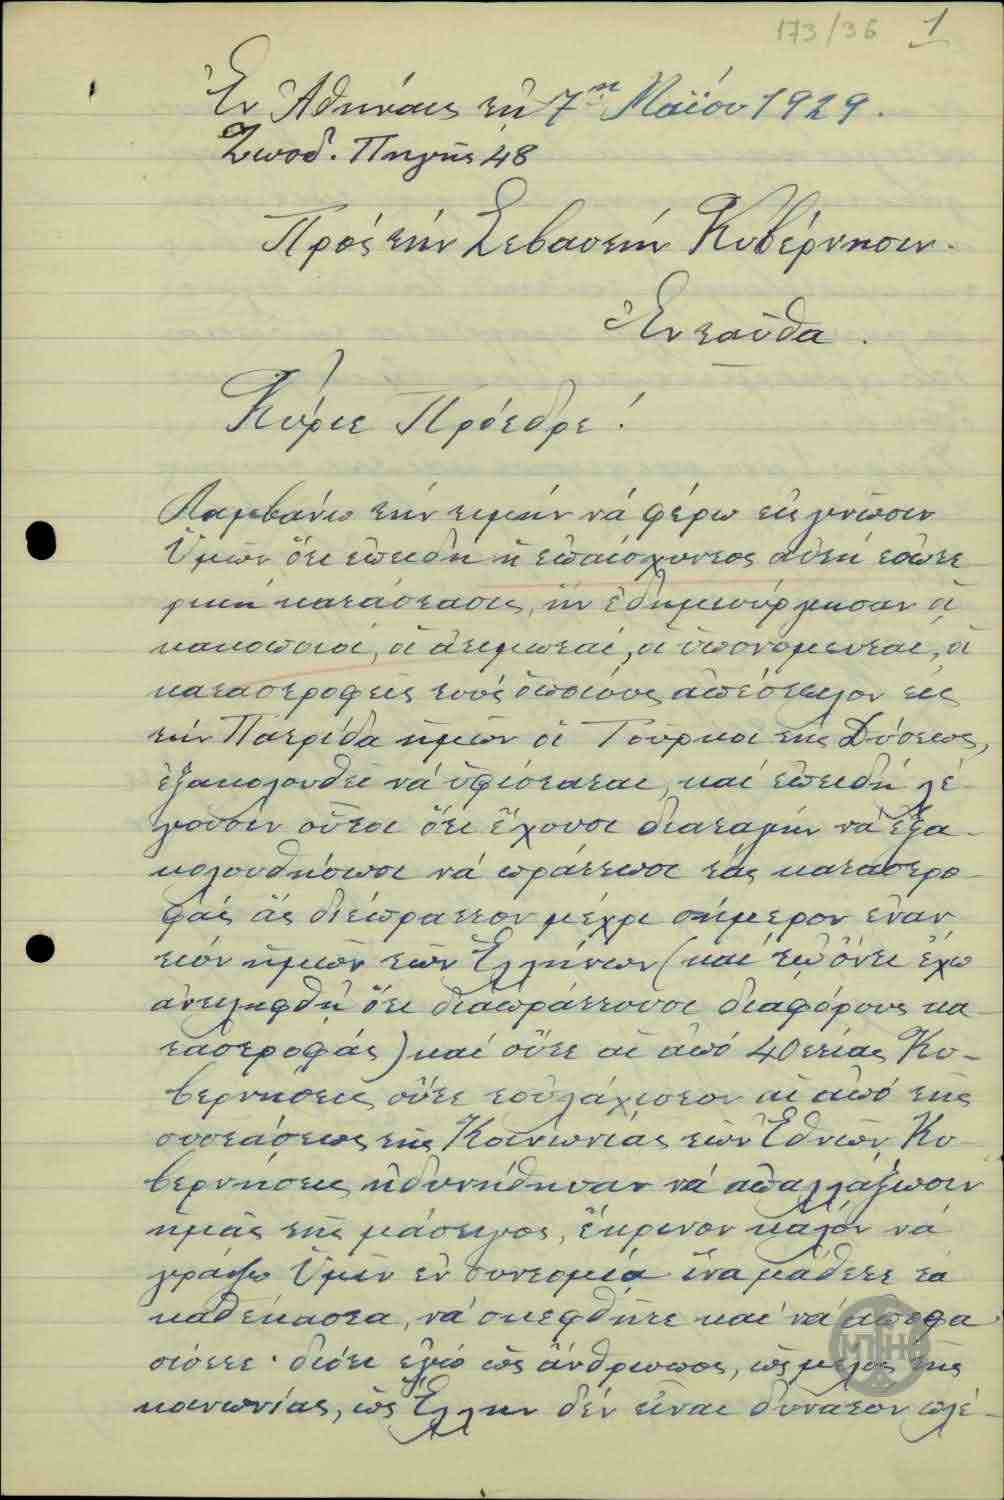 173/36 1
Ἐν Ἀθήναις τῇ 7ῃ Μαΐου 1929.
Ζωοδ. Πηγῆς 48
Πρός τήν Σεβαστήν Κυβέρνησιν.
Ἐνταῦθα.
Κύριε Πρόεδρε!
Λαμβάνω τήν τιμήν νά φέρω εἰς γνῶσιν
Ὑμῶν ὅτι ἐπειδή ἡ ἐπαίσχυντος αὐτή ἐσωτε-
ρική κατάστασις, ἥν ἐδημιούργησαν οἱ
κακοποιοί, οἱ ἀτιμωταί, οἱ ὑπονομευταί, οἱ
καταστροφεῖς τούς ὁποίους ἀπέστειλον εἰς
τήν Πατρίδα ἡμῶν οἱ Τοῦρκοι τῆς Δύσεως,
ἐξακολουθεῖ νά ὑφίσταται, καί ἐπειδή λέ-
γουσιν οὗτοι ὅτι ἔχουσι διαταγήν νά ἐξα-
κολουθήσωσι νά πράττωσι τάς καταστρο-
φάς ἅς διέπραττον μέχρι σήμερον ἐναν-
τίον ἡμῶν τῶν Ἑλλήνων (καί τῷ ὄντι ἔχω
ἀντιληφθῆ ὅτι διαπράττουσι διαφόρους κα-
ταστροφάς) καί οὔτε αἱ ἀπό 40ετίας Κυ-
βερνήσεις οὔτε τοὐλάχιστον αἱ ἀπό τῆς
συστάσεως τῆς Κοινωνίας τῶν Ἐθνῶν Κυ-
βερνήσεις ἠδυνήθησαν νά ἀπαλλάξωσιν
ἡμᾶς τῆς μάστιγος, ἔκρινον καλόν νά
γράψω Ὑμῖν ἐν συντομίᾳ ἵνα μάθετε τά
καθέκαστα, νά σκεφθῆτε καί νά ἀποφα-
σίσετε· διότι ἐγώ ὡς ἄνθρωπος, ὡς μέλος τῆς
κοινωνίας, ὡς Ἕλλην δέν εἶναι δυνατόν πλέ-